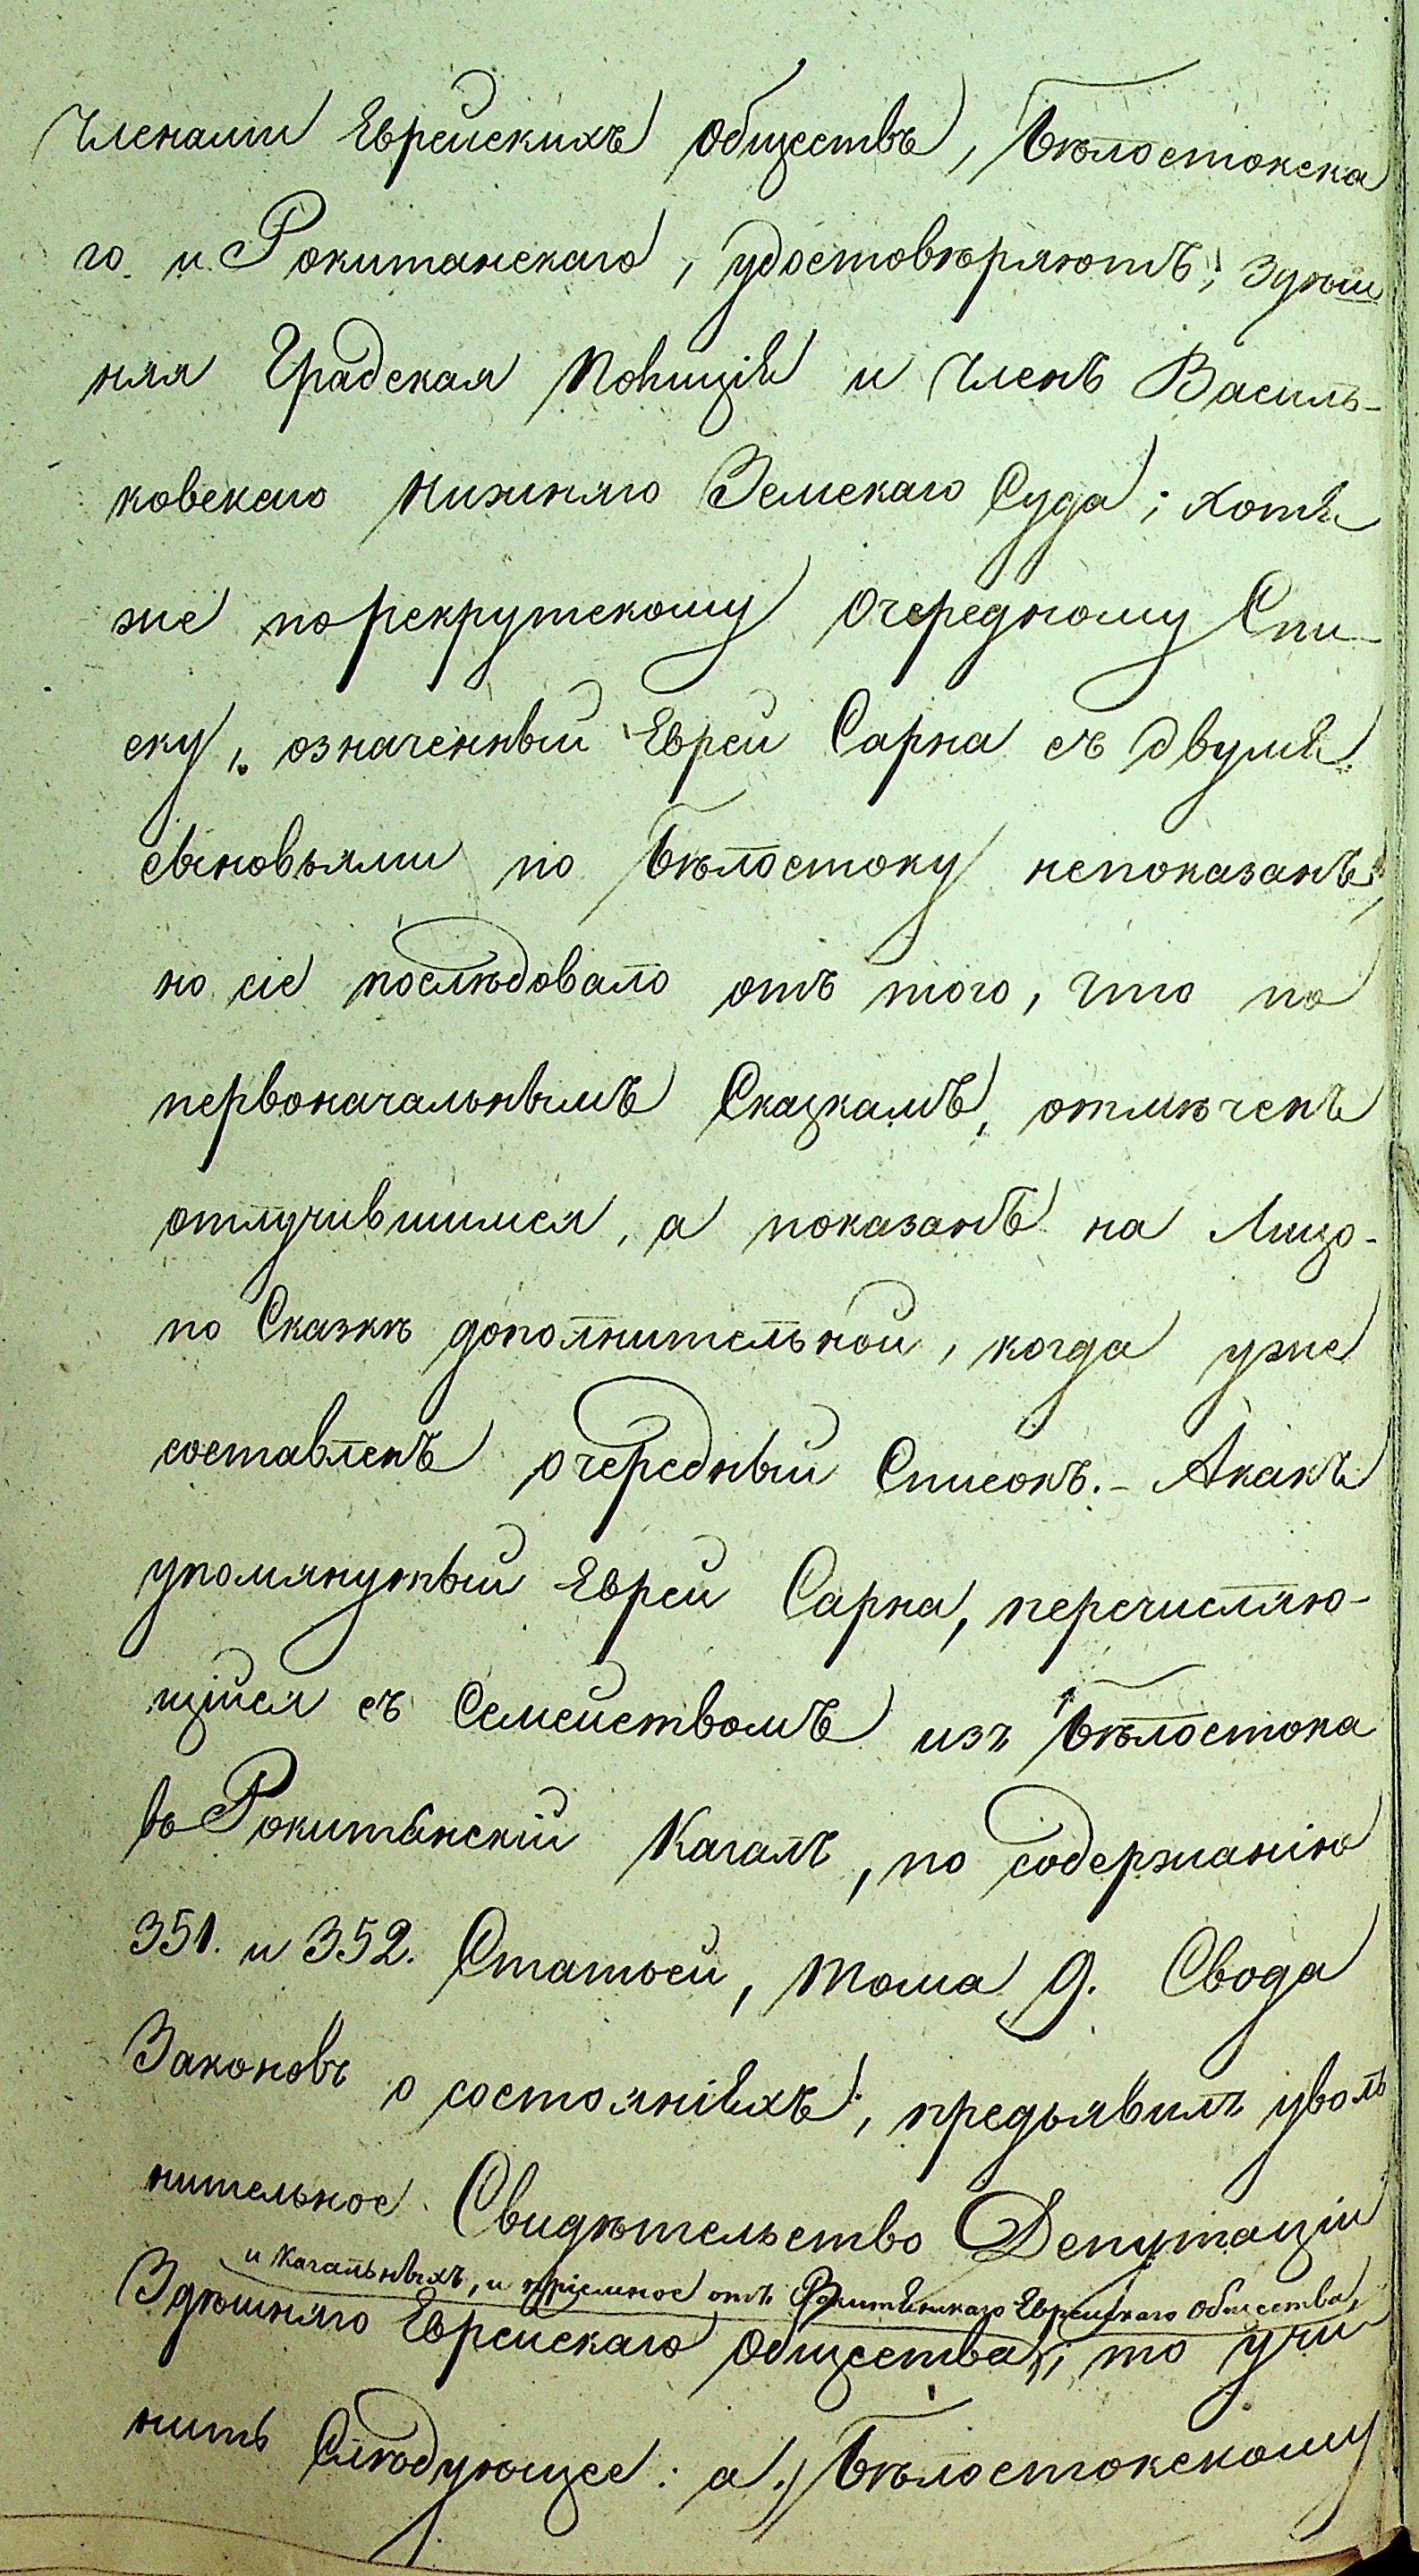 Членами Еврейскихъ Обществъ, Бѣлостокска
го и Рокитанскаго, удостовѣряютъ; здѣш
няя Градская Полиція и Членъ Василь-
ковскаго Нижняго Земскаго Суда; хотя
же по рекрутскому Очередному Спи-
ску, означенный Еврей Сарна съ двумя
сыновьями по Бѣлостоку непоказанъ,
но сіе послѣдовало отъ того, что по
первоначальнымъ Сказкамъ, отмѣченъ
отлучившимся, а показанъ на Лицо-
по Сказкѣ дополнительной, когда уже
составленъ очередный Списокъ.- Акакъ
упомянутый Еврей Сарна, перечисляю-
щійся съ Семействомъ изъ Бѣлостока
въ Рокитанскій Кагалъ, по содержанію
351. и 352. Статьей, тома 9. Свода
Законовъ о состояніяхъ, предъявилъ уволь
нительное Свидѣтельство Депутаціи
и Кагальныхъ, и пріемное отъ Рокитанскаго Еврейскаго Общества,
Здѣшняго Еврейскаго Общества; то учи
нить Слѣдующее: а.) Бѣлостокскому